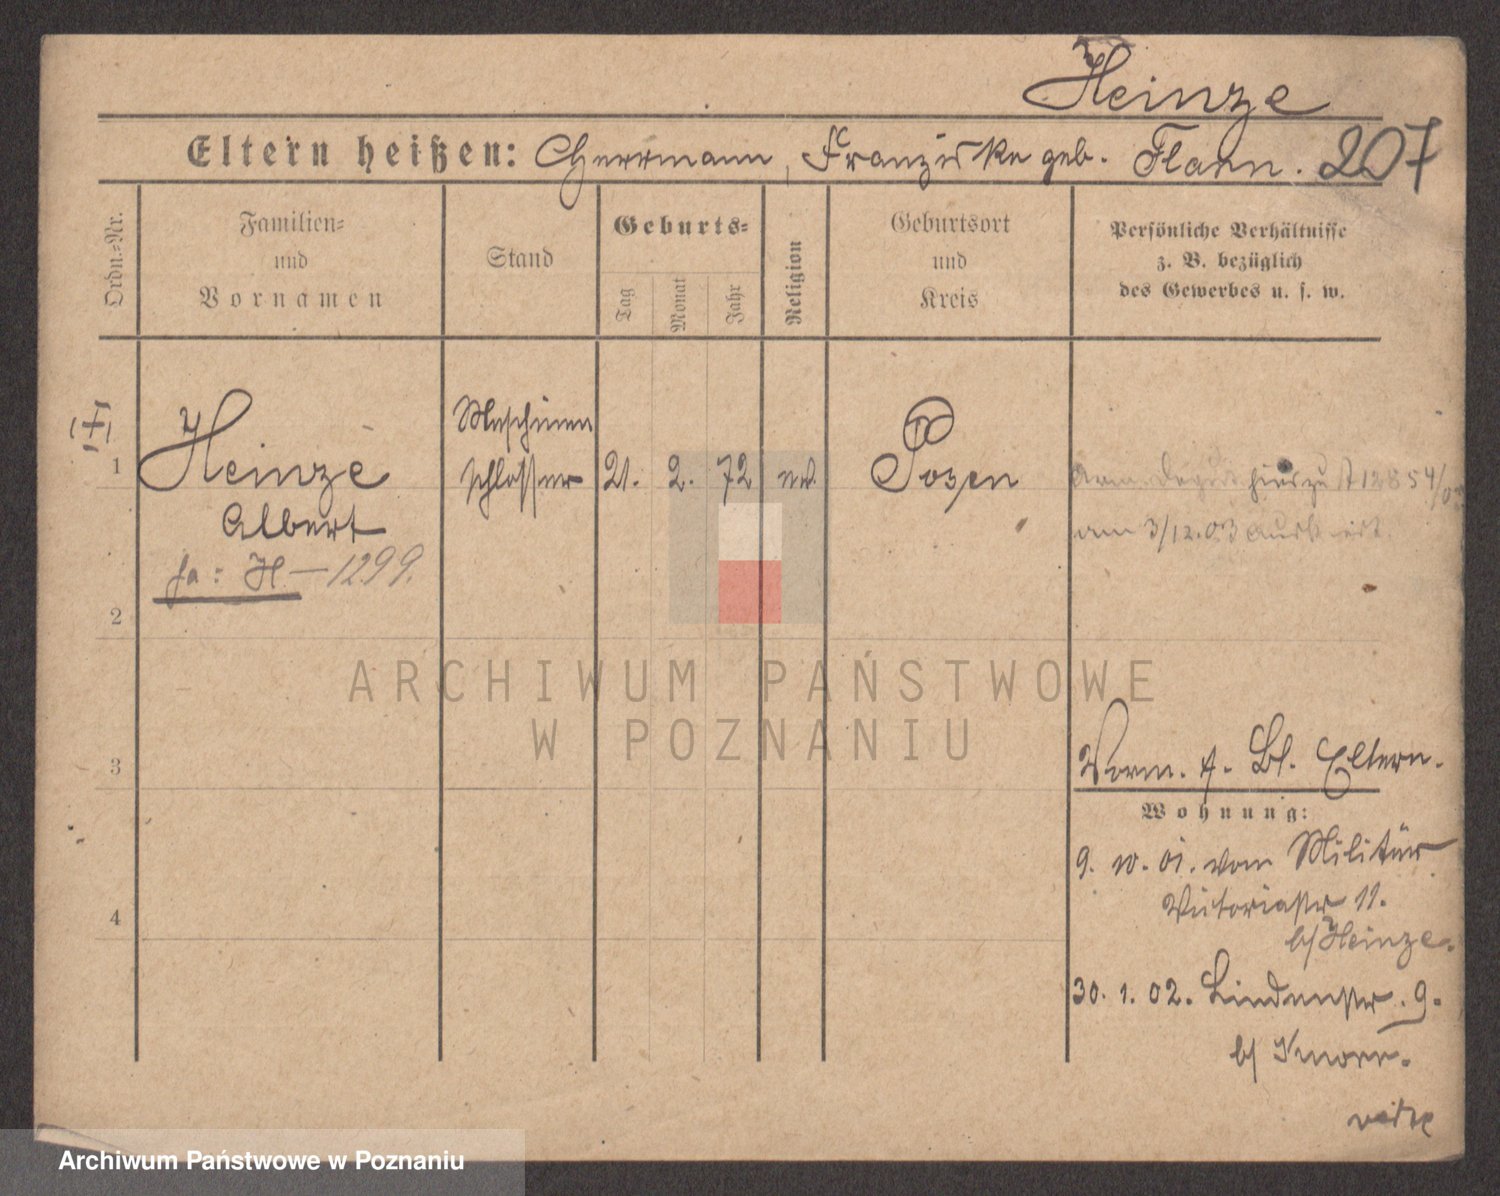 Heinze
Eltern heißen: Herrmann, Franziska geb. Flann. 207
Ordn.-Nr.
Familien-
und
Vornamen
Stand
Geburts-
Tag
Monat
Jahr
Religion
Geburtsort
und
Kreis
Persönliche Verhältnisse
z. B. bezüglich
des Gewerbes u. s. w.
1
Heinze
Albert
fa: H - 1299.
Maschinen
schlosser
21. 2. 72
ev.
Posen
hierzu
am 3/12.03
2
3
4
Vorm. f. Bl. Eltern.
Wohnung:
9. 10. 01. vom Militär
Victoriastr 11.
b/ Heinze.
30. 1. 02. Lindenstr. 9.
b/ Knorr.
ARCHIWUM PAŃSTWOWE
W POZNANIU
Archiwum Państwowe w Poznaniu